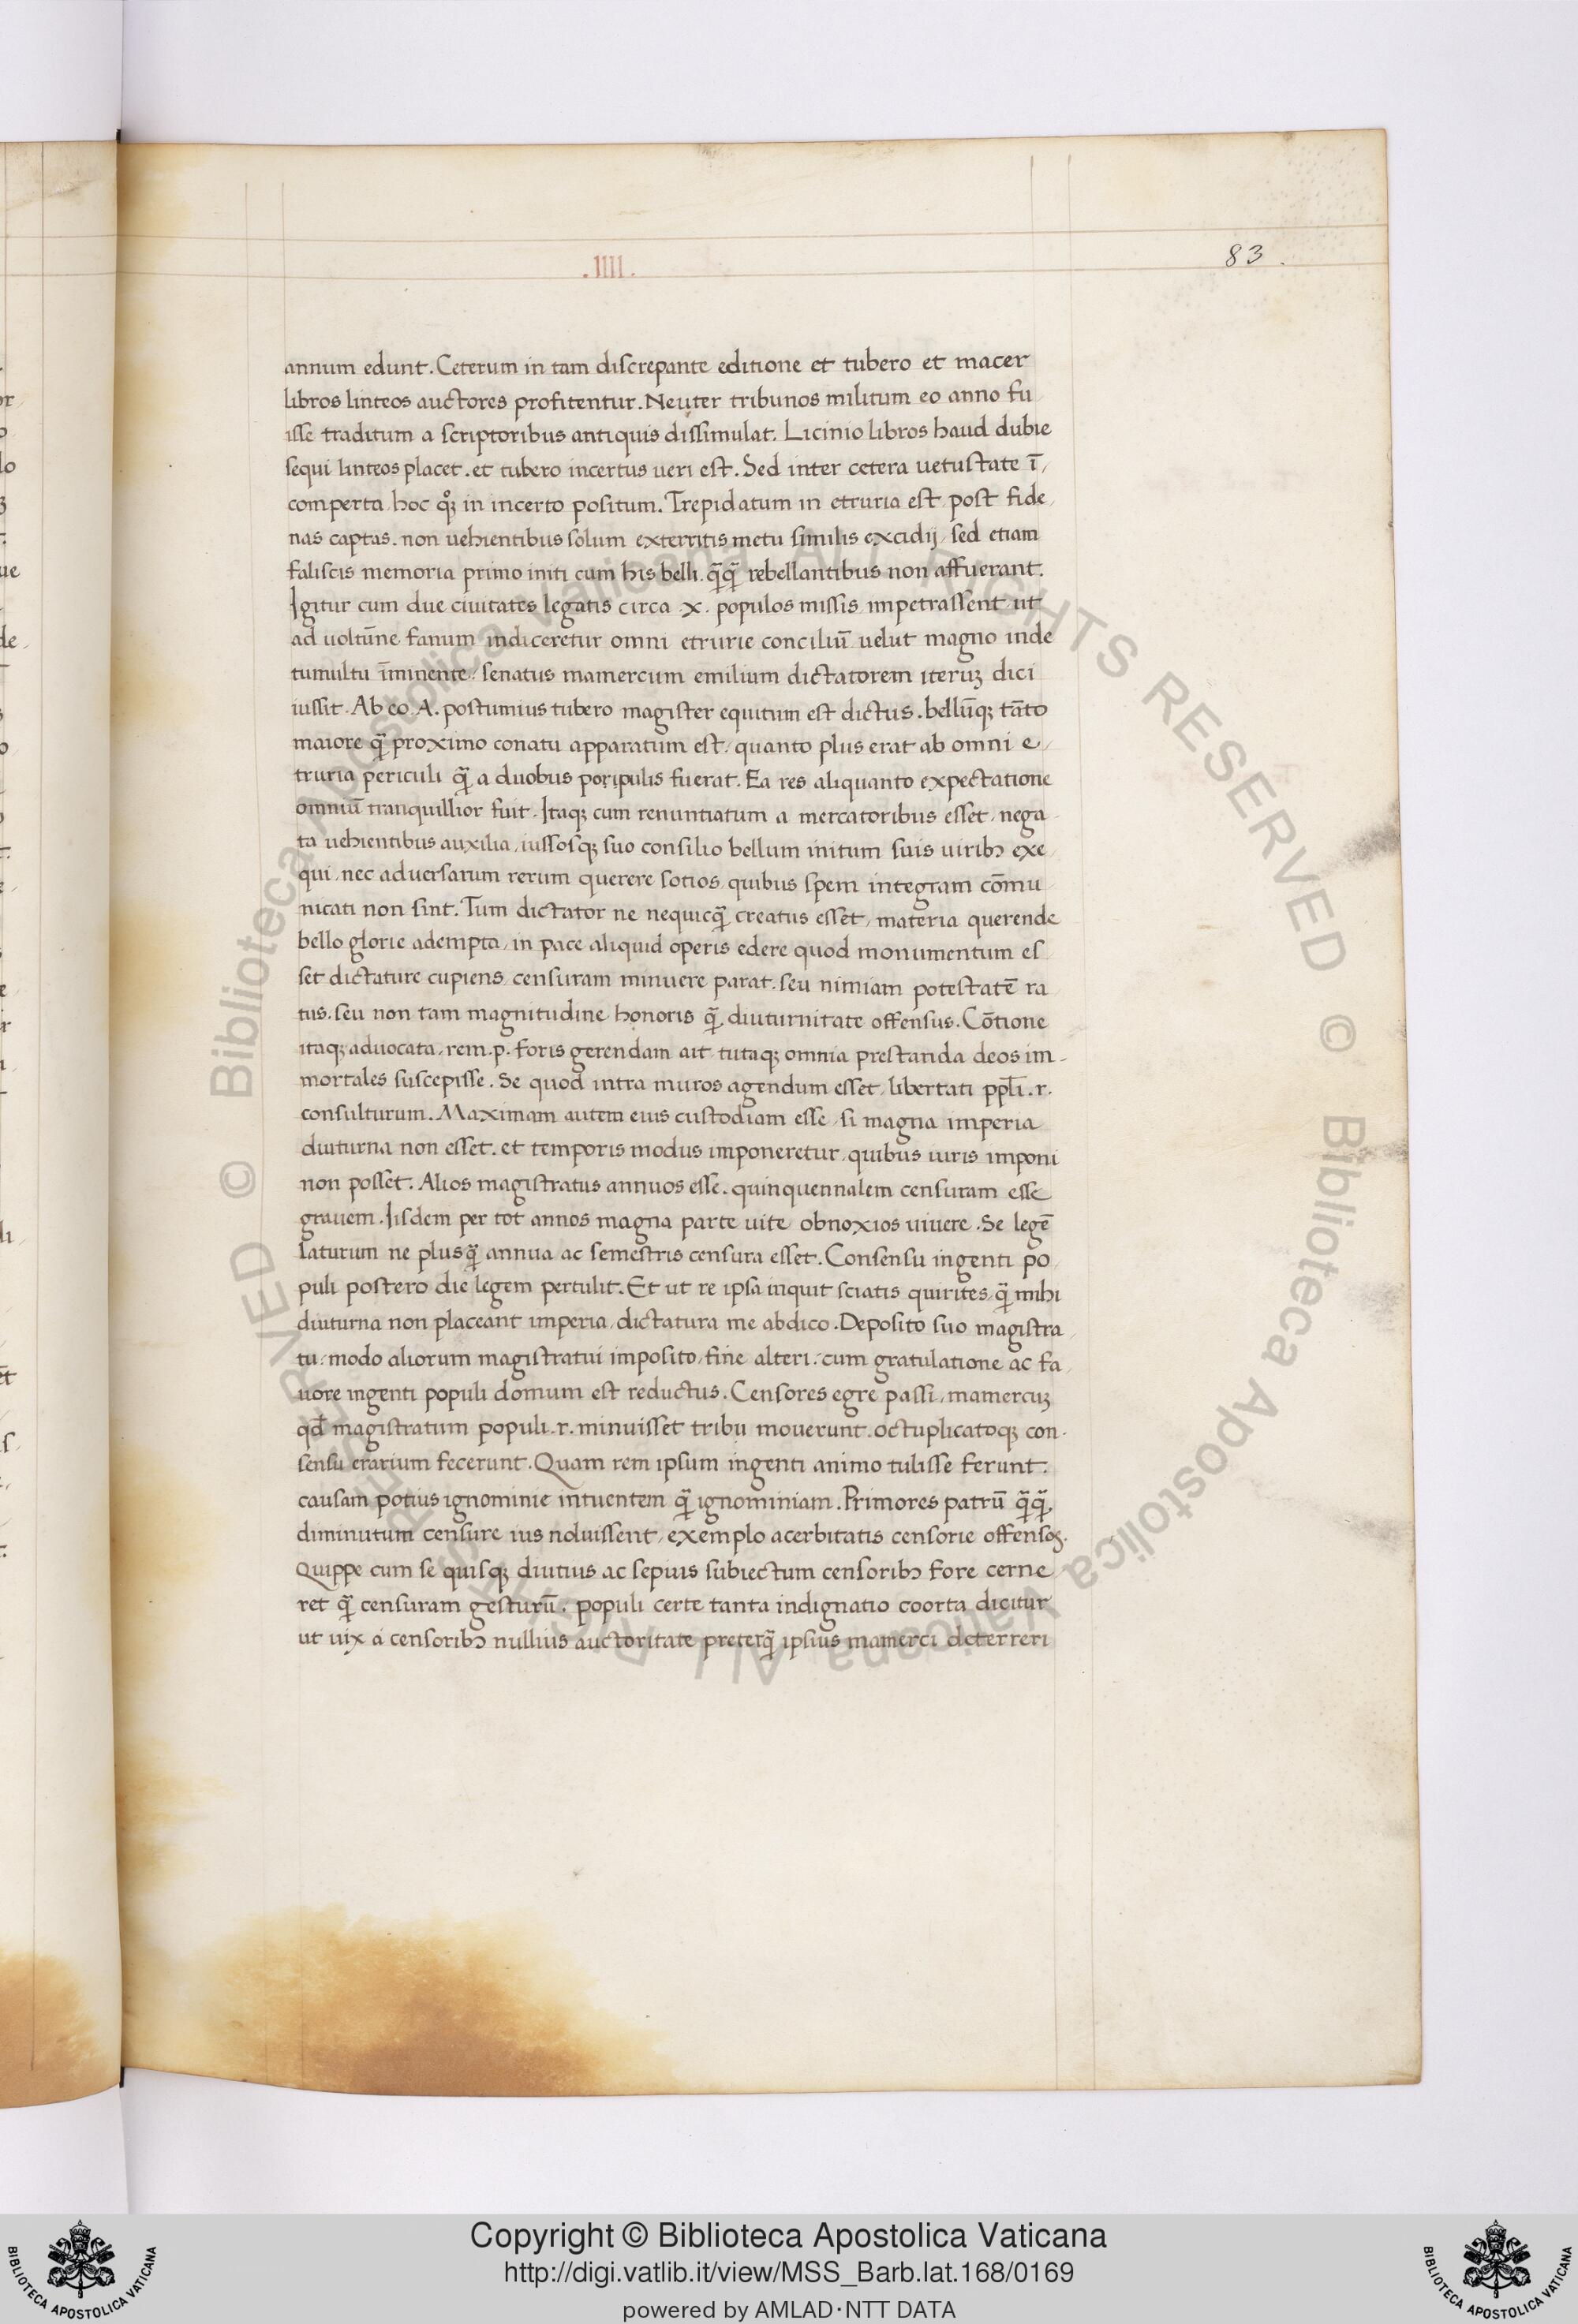 .IIII.
83.
annum edunt. Ceterum in tam discrepante editione et tubero et macer
libros linteos auctores profitentur. Neuter tribunos militum eo anno fu
isse traditum a scriptoribus antiquis dissimulat. Licinio libros haud dubie
sequi linteos placet. et tubero incertus ueri est. Sed inter cetera uetustate ī
comperta hoc qͦꝫ in incerto positum. Trepidatum in etruria est post fide
nas captas. non uehientibus solum exterritis metu similis excidij, sed etiam
faliscis memoria primo initi cum his belli. qꝫ̄qꝫ̄ rebellantibus non affuerant.
Igitur cum due ciuitates legatis circa .x. populos missis impetrassent ut
ad uoltūne fanum indiceretur omni etrurie conciliū uelut magno inde
tumultu īminente senatus mamercum emilium dictatorem iteruꝫ dici
iussit. Ab eo A. postumius tubero magister equitum est dictus. bellūqꝫ tāto
maiore q̄ proximo conatu apparatum est, quanto plus erat ab omni e
truria periculi q̄ a duobus poripulis fuerat. Ea res aliquanto expectatione
omniū tranquillior fuit. Itaqꝫ cum renuntiatum a mercatoribus esset, nega
ta uehientibus auxilia, iussosqꝫ suo consilio bellum initum suis uiribꝫ exe
qui, nec aduersarum rerum querere sotios, quibus spem integram cōmu
nicati non sint. Tum dictator ne nequicq̄ creatus esset, materia querende
bello glorie adempta, in pace aliquid operis edere quod monumentum es
set dictature cupiens censuram minuere parat. seu nimiam potestatē ra
tus. seu non tam magnitudine honoris q̄ diuturnitate offensus. Cōtione
itaqꝫ aduocata, rem.p. foris gerendam ait tutaqꝫ omnia prestanda deos im
mortales suscepisse. Se quod intra muros agendum esset, libertati ppl̄i .r.
consulturum. Maximam autem eius custodiam esse, si magna imperia
diuturna non esset. et temporis modus imponeretur, quibus iuris imponi
non posset. Alios magistratus annuos esse. quinquennalem censuram esse
grauem. Iisdem per tot annos magna parte uite obnoxios uiuere. Se legē
laturum ne plusq̄ annua ac semestris censura esset. Consensu ingenti po
puli postero die legem pertulit. Et ut re ipsa inquit sciatis quirites, q̄ mihi
diuturna non placeant imperia, dictatura me abdico. Deposito suo magistra
tu, modo aliorum magistratui imposito, fine alteri, cum gratulatione ac fa
uore ingenti populi domum est reductus. Censores egre passi, mamercuꝫ
qđ magistratum populi .r. minuisset tribu mouerunt. octuplicatoqꝫ con
sensu erarium fecerunt. Quam rem ipsum ingenti animo tulisse ferunt.
causam potius ignominie intuentem q̄ ignominiam. Primores patrū q̄q̄
diminutum censure ius noluissent, exemplo acerbitatis censorie offensos.
Quippe cum se quisqꝫ diutius ac sepius subiectum censoribꝫ fore cerne
ret q̄ censuram gesturū. populi certe tanta indignatio coorta dicitur
ut uix a censoribꝫ nullius auctoritate preterq̄ ipsius mamerci deterreri
© Biblioteca Apostolica Vaticana ALL RIGHTS RESERVED
© Biblioteca Apostolica Vaticana ALL RIGHTS RESERVED
Copyright © Biblioteca Apostolica Vaticana
http://digi.vatlib.it/view/MSS_Barb.lat.168/0169
powered by AMLAD·NTT DATA
BIBLIOTECA APOSTOLICA VATICANA
BIBLIOTECA APOSTOLICA VATICANA